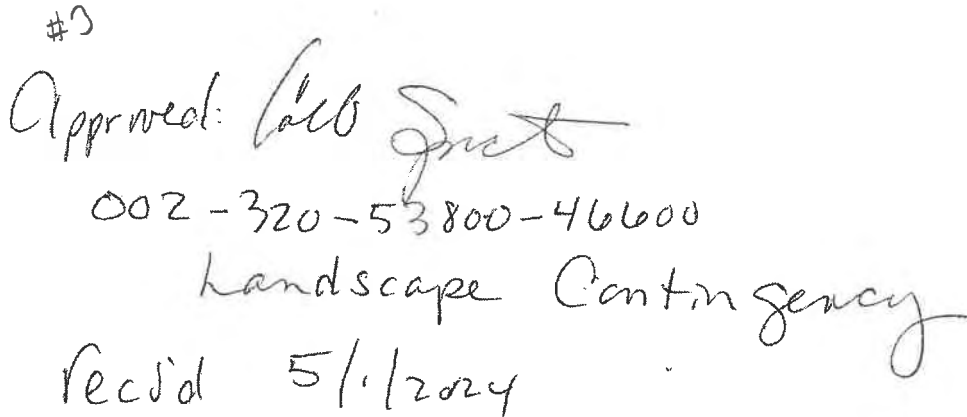 #3
Approved:
002-320-53800-46600
Landscape Contingency
rec'd 5/1/2024